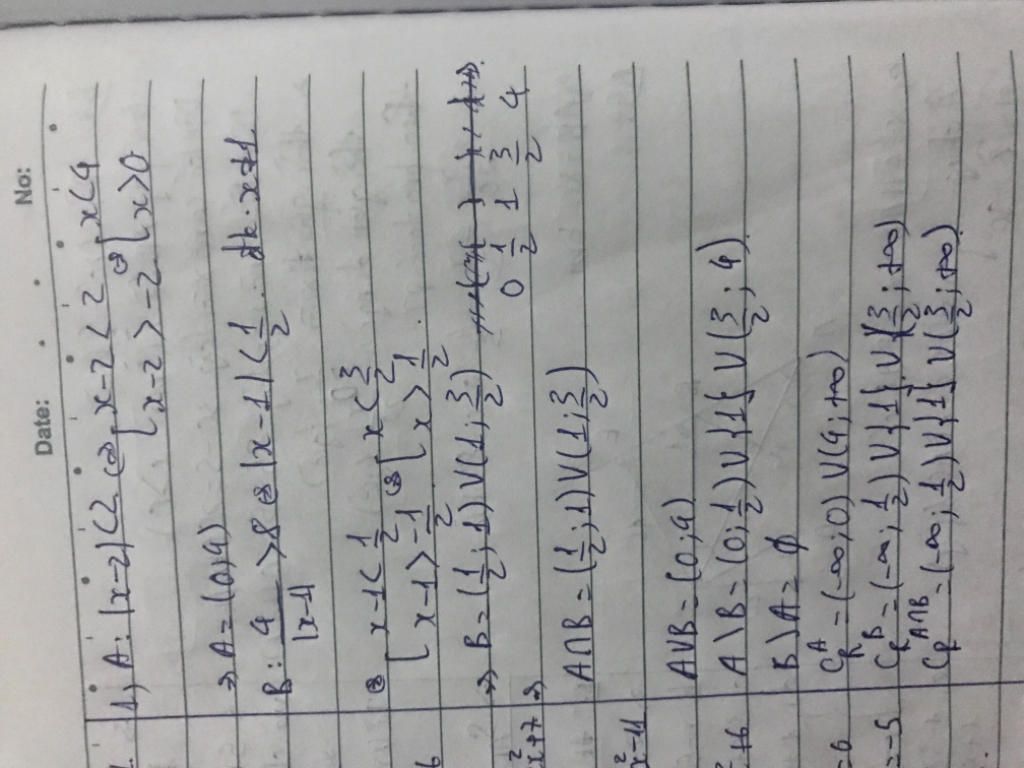 Date: No:
1) A: |x-2|<2 ⇔ [x-2<2 ⇔ [x<4
[x-2>-2 [x>0
⇒ A = (0;4)
B: 4/|x-1| >8 ⇔ |x-1|<1/2 đk: x≠1
⇔ [x-1<1/2 ⇔ [x<3/2
[x-1>-1/2 [x>1/2
⇒ B = (1/2;1)∪(1;3/2)
0 1/2 1 3/2 4
A∩B = (1/2;1)∪(1;3/2)
A∪B = (0;4)
A\B = (0;1/2)∪{1}∪(3/2;4)
B\A = ∅
C_R^A = (-∞;0)∪(4;+∞)
C_R^B = (-∞;1/2)∪{1}∪(3/2;+∞)
C_R^A∩B = (-∞;1/2)∪{1}∪(3/2;+∞)
6
x²+7 ⇒
x²-11
²+6
=6
=-5